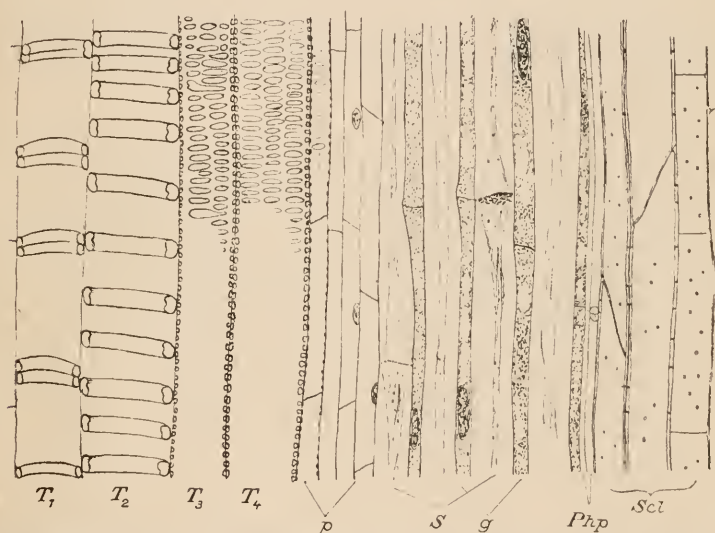 T₁ T₂ T₃ T₄ p S g Php Scl